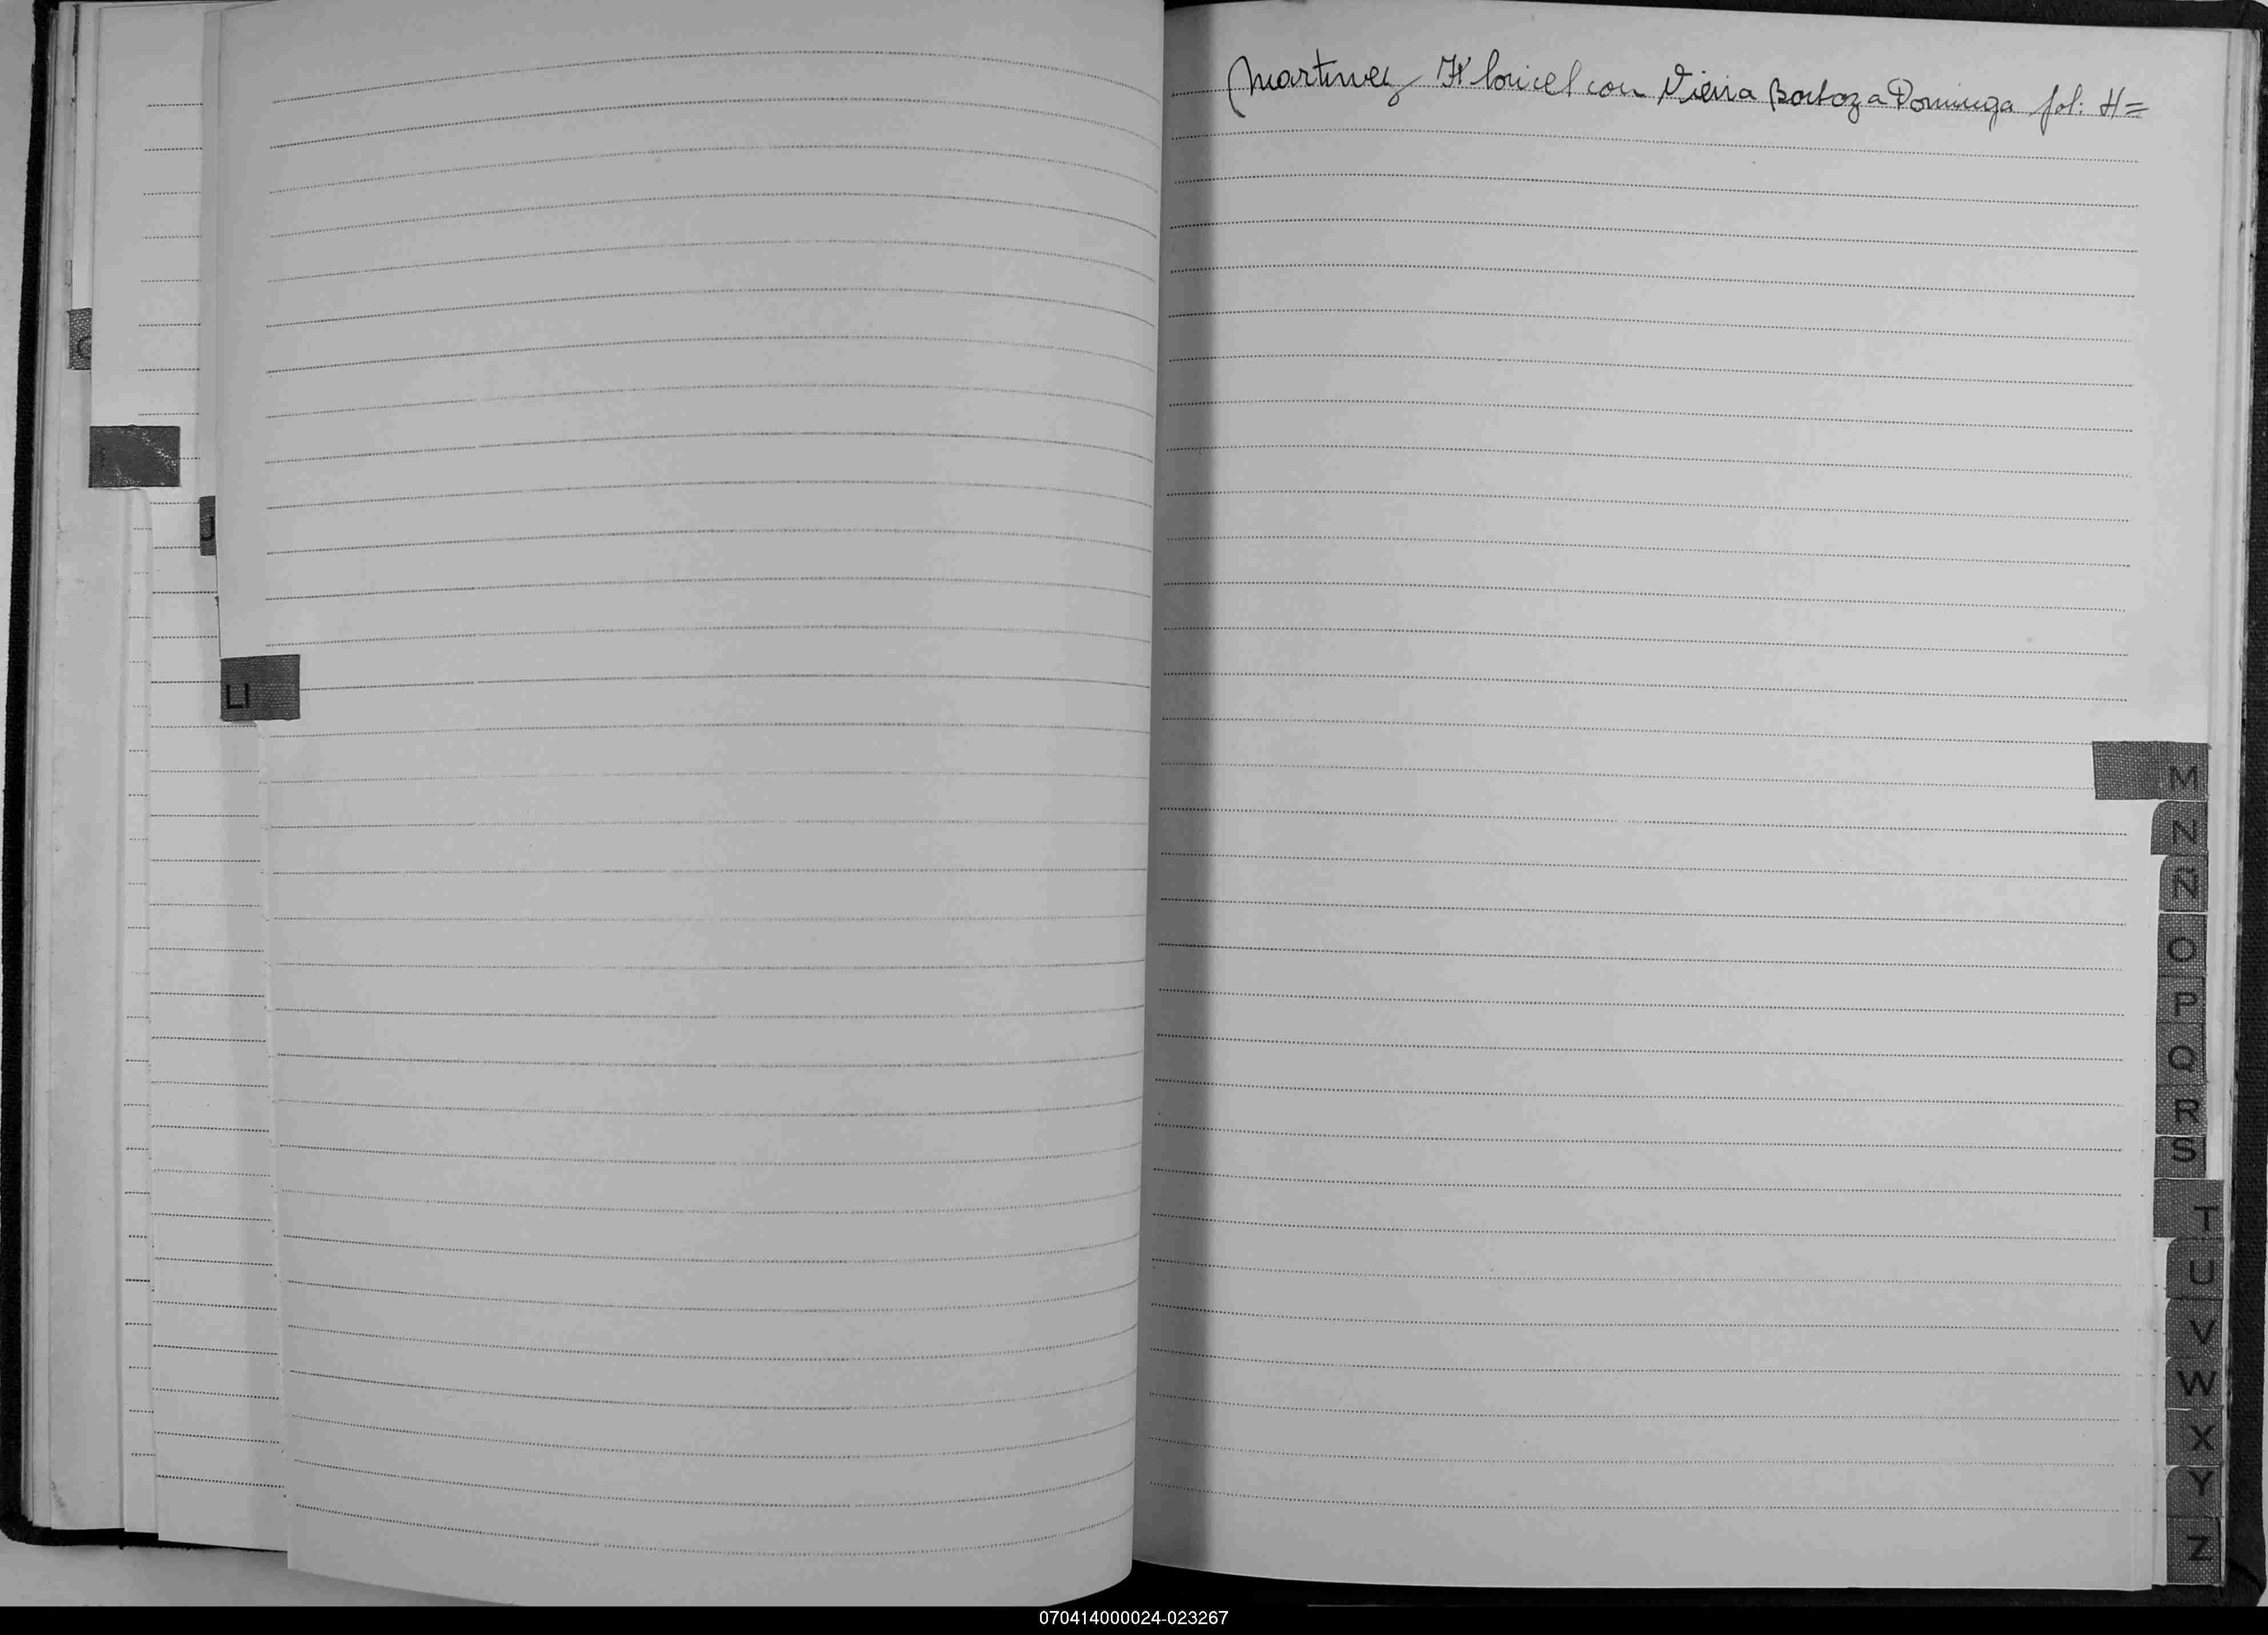 Martinez Floricel con Vieira Barboza Dominga fol: H=
G
J
Ll
M
N
Ñ
O
P
Q
R
S
T
U
V
W
X
Y
Z
070414000024-023267